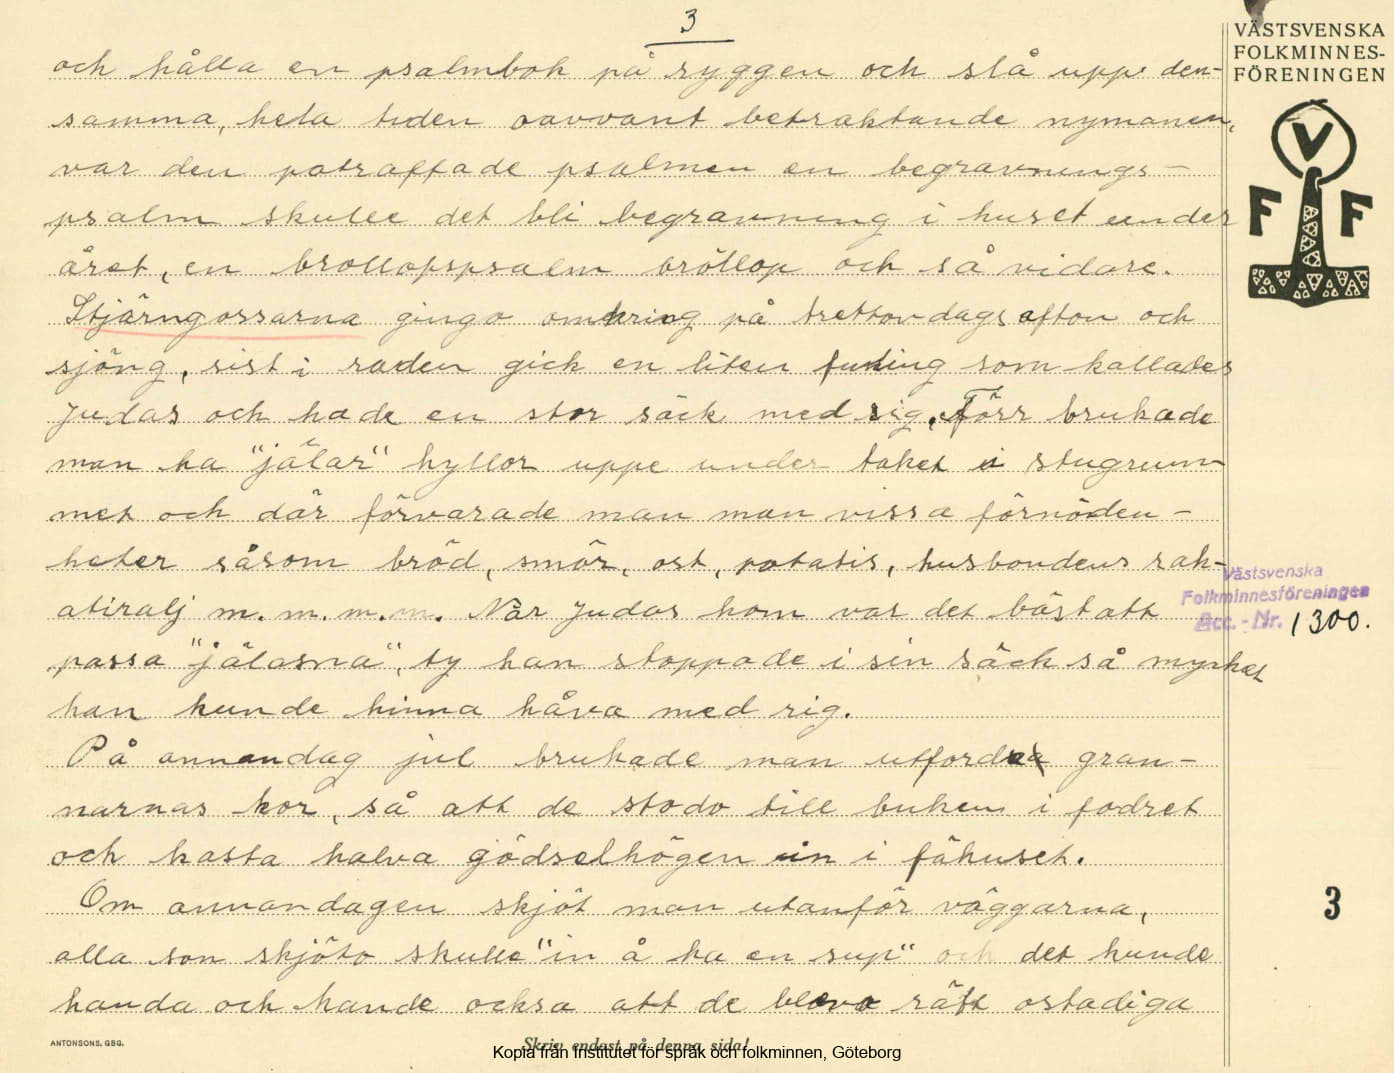 3
VÄSTSVENSKA
FOLKMINNES-
FÖRENINGEN
V
F F
och hålla en psalmbok på ryggen och slå upp den-
samma, hela tiden oavvant betraktande nymånen,
var den påträffade psalmen en begravnings-
psalm skulle det bli begravning i huset under
året, en bröllopspsalm bröllop och så vidare.
Stjärngossarna gingo omkring på trettondagsafton och
sjöng, sist i raden gick en liten som kallades
Judas och hade en stor säck med sig. Förr brukade
man ha "jälar" hyllor uppe under taket i stugrum-
met och där förvarade man man vissa förnöden-
heter såsom bröd, smör, ost, potatis, husbondens rak-
atiralj m. m. m. m. När Judas kom var det bäst att
passa "jälasna", ty han stoppade i sin säck så mycket
han kunde hinna håva med sig.
På annandag jul brukade man utfordra gran-
narnas kor, så att de stodo till buken i fodret
och kasta halva gödselhögen in i fähuset.
Om annandagen skjöt man utanför väggarna,
alla som skjöto skulle "in å ha en sup" och det kunde
handa och hande också att de blevo rätt ostadiga
Västsvenska
Folkminnesföreningen
Acc. - Nr. 1300.
3
ANTONSONS, GBG.
Skriv endast på denna sida!
Kopia från Institutet för språk och folkminnen, Göteborg